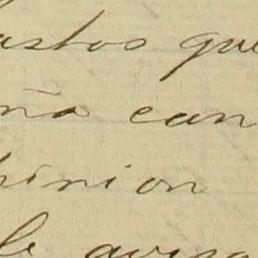 astos que
ña can
pinion
le avisa